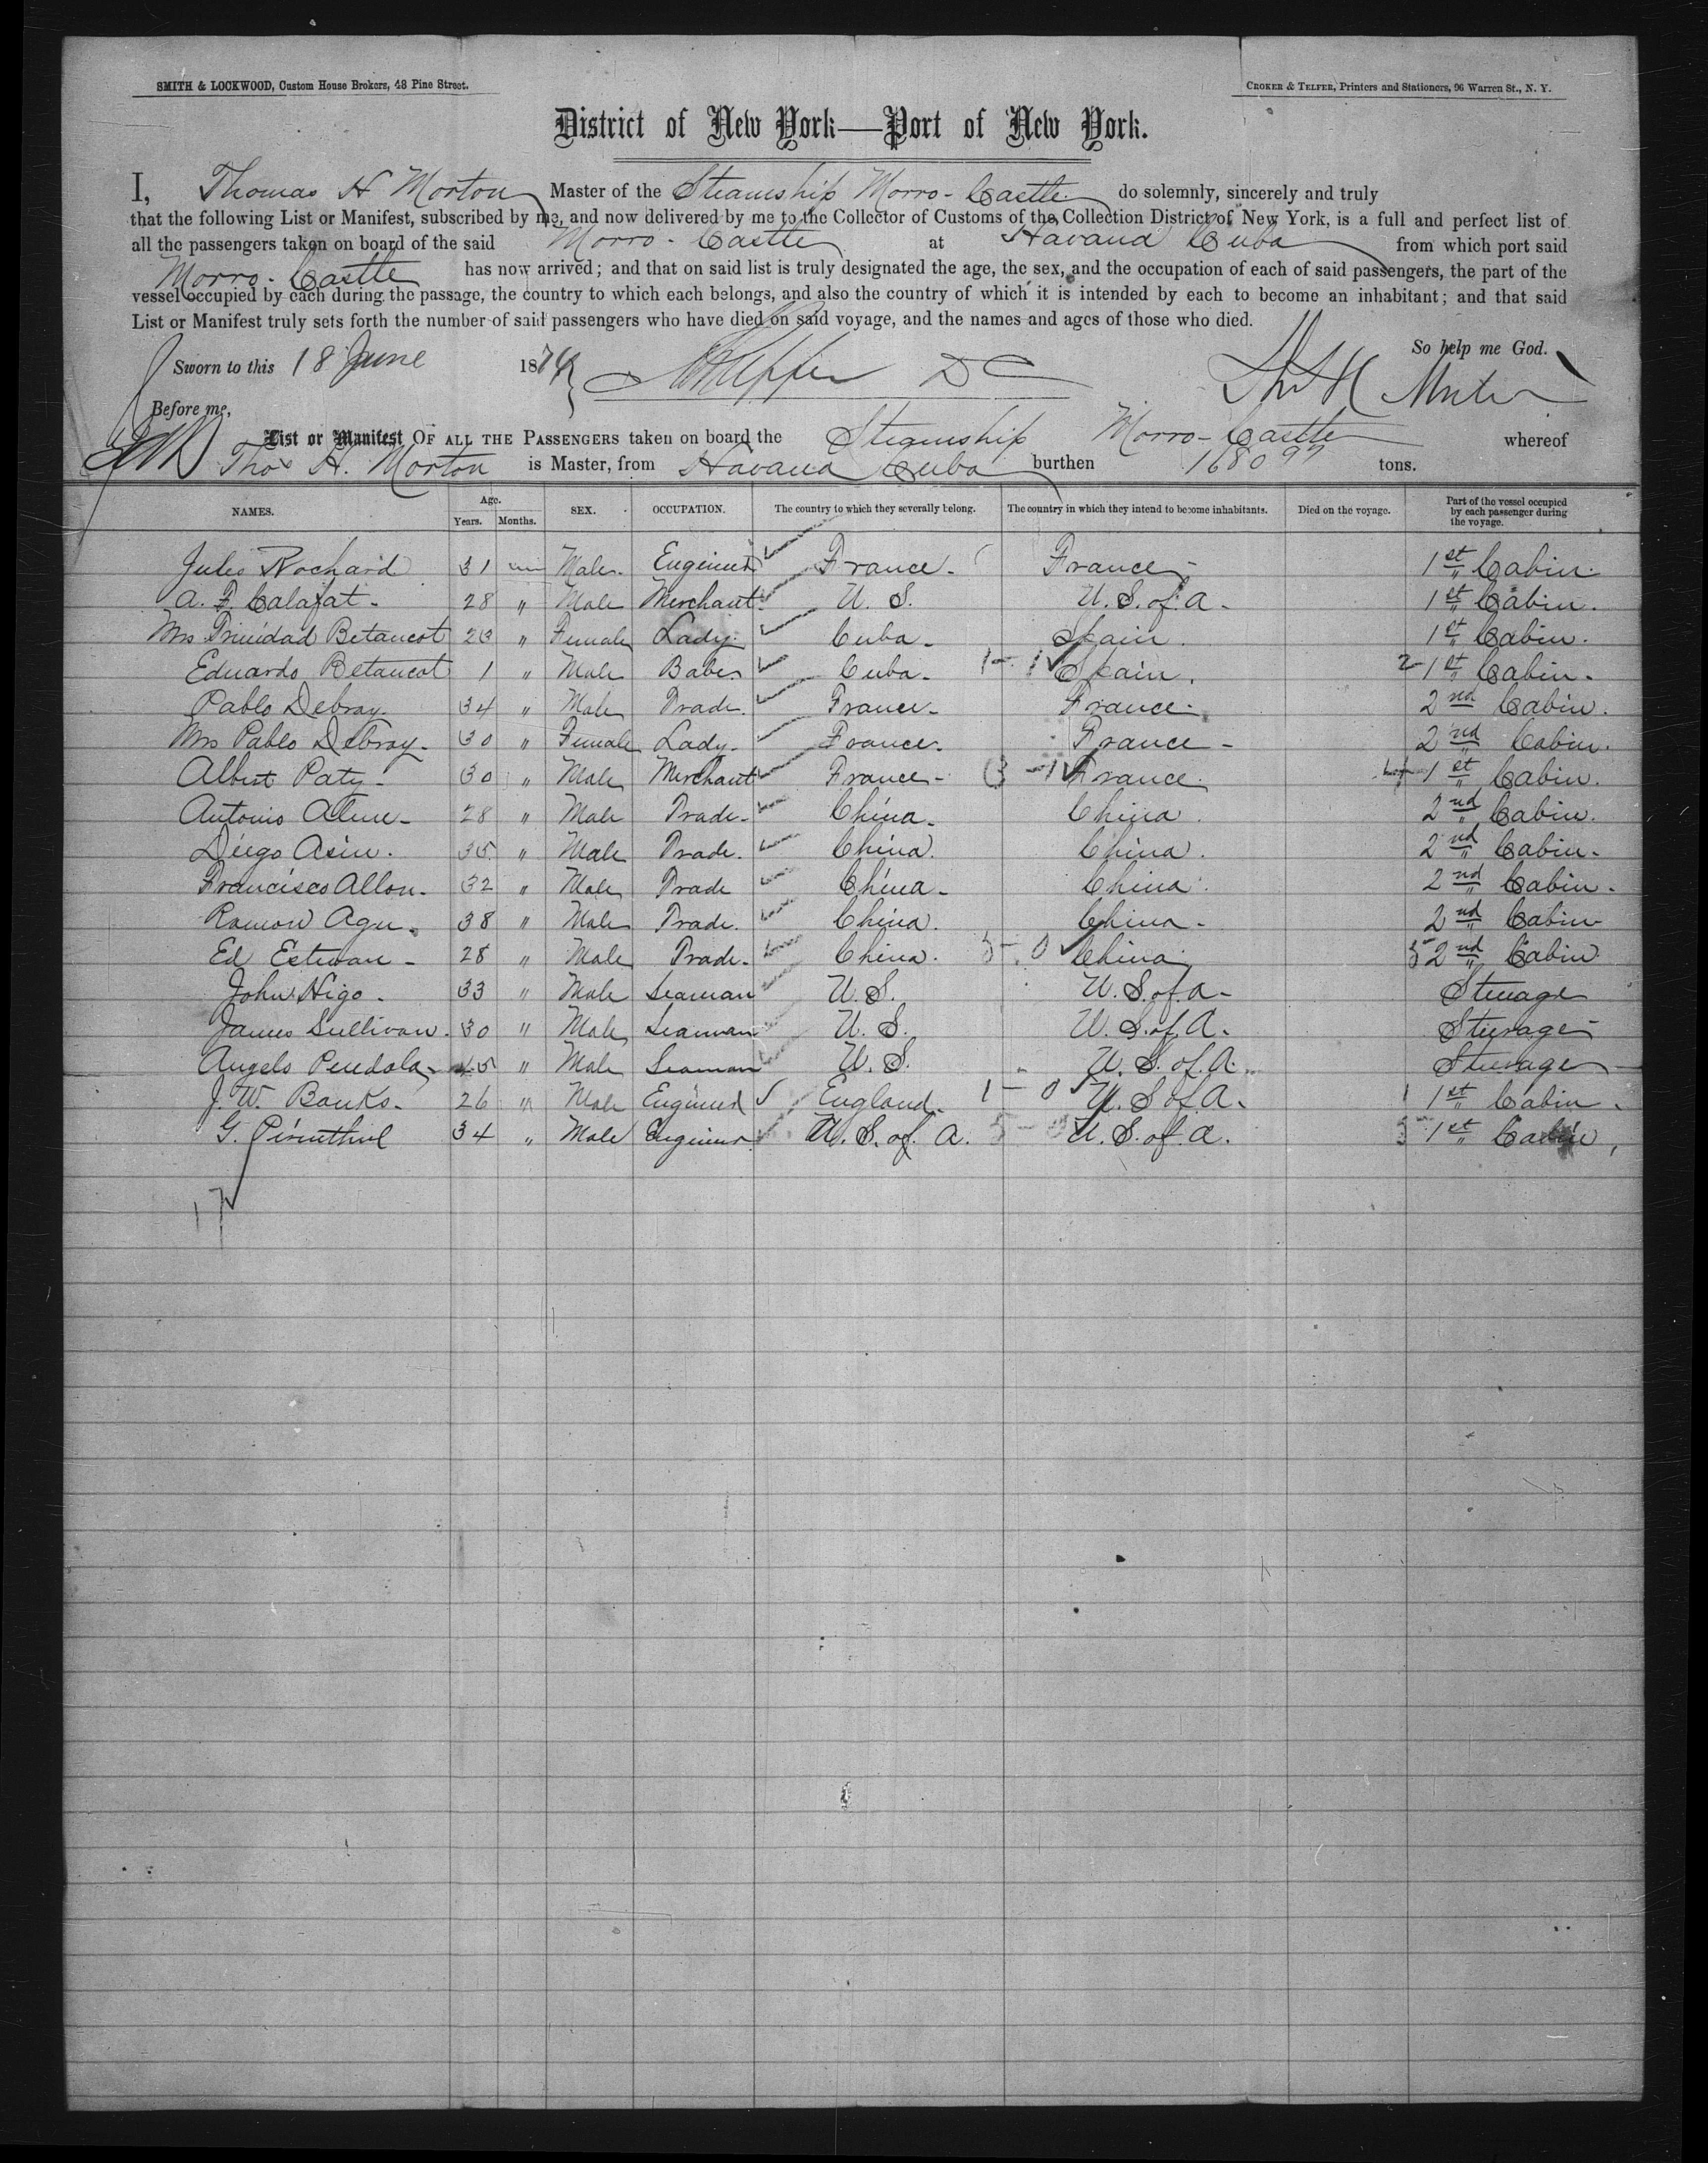 SMITH & LOCKWOOD, Custom House Brokers, 48 Pine Street.
CROKER & TELFER, Printers and Stationers, 96 Warren St., N. Y.
District of New York—Port of New York.
I, Thomas H Morton Master of the Steamship Morro-Castle do solemnly, sincerely and truly
that the following List or Manifest, subscribed by me, and now delivered by me to the Collector of Customs of the Collection District of New York, is a full and perfect list of
all the passengers taken on board of the said Morro-Castle at Havana Cuba from which port said
Morro-Castle has now arrived; and that on said list is truly designated the age, the sex, and the occupation of each of said passengers, the part of the
vessel occupied by each during the passage, the country to which each belongs, and also the country of which it is intended by each to become an inhabitant; and that said
List or Manifest truly sets forth the number of said passengers who have died on said voyage, and the names and ages of those who died.
So help me God.
Sworn to this 18 June 1874
Before me,
List or Manifest OF ALL THE PASSENGERS taken on board the Steamship Morro-Castle whereof
Thos H. Morton is Master, from Havana Cuba burthen 1680 97 tons.
NAMES. Age. Years. Months. SEX. OCCUPATION. The country to which they severally belong. The country in which they intend to become inhabitants. Died on the voyage. Part of the vessel occupied by each passenger during the voyage.
Jules Rochard 31 Male Engineer France France 1st Cabin
A. F. Calafat 28 " Male Merchant U. S. U. S. of A. 1st " Cabin
Mrs Trinidad Betancot " Female Lady Cuba Spain 1st " Cabin
Eduardo Betancot 1 " Male Babe Cuba 1 - 1 Spain 2 1st " Cabin
Pablo Debray 34 " Male Trade France France 2nd Cabin
Mrs Pablo Debray 30 " Female Lady France France 2nd " Cabin
Albert Paty 30 " Male Merchant France 3 - 1 France 4 1st " Cabin
Antonio 28 " Male Trade China China 2nd " Cabin
Diego Asin 35 " Male Trade China China 2nd " Cabin
Francisco Allon 32 " Male Trade China China 2nd " Cabin
Ramon Agu 38 " Male Trade China China 2nd " Cabin
Ed Estevan 28 " Male Trade China 5 - 0 China 5 2nd " Cabin
John Higo 33 " Male Seaman U. S. U. S. of A Steerage
James Sullivan 30 " Male Seaman U. S. U. S. of A. Steerage
Angelo Pendola 45 " Male Seaman U. S. U. S. of A. Steerage
J. W. Banks 26 " Male Engineer England 1 - 0 U. S. of A. 1 1st " Cabin
G. 34 " Male Engineer U. S. of A. 5 - 0 U. S. of A. 5 1st " Cabin
17